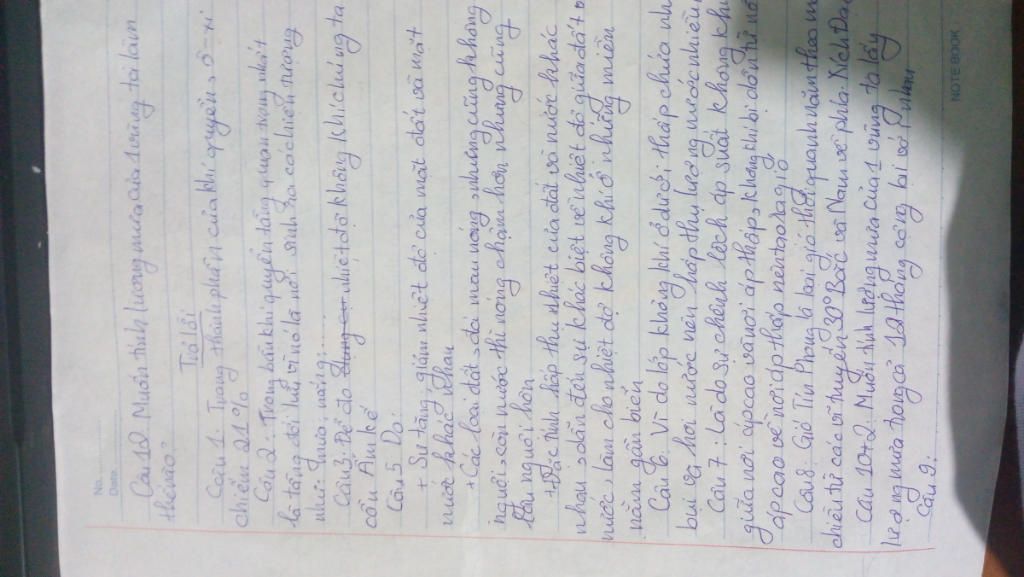 No.
Date
Câu 12 Muốn tính lượng mưa của 1 vùng ta làm
thế nào?
Trả lời
Câu 1. Trong thành phần của khí quyển, ô-xi
chiếm 21%
Câu 2. Trong bầu khí quyển tầng quan trọng nhất
là tầng đối lưu vì nó là nơi sinh ra các hiện tượng
như: mưa, nắng,...
Câu 3. Để đo nhiệt độ không khí chúng ta
cần Ẩm kế
Câu 5 Do:
+ Sự tăng, giảm nhiệt độ của mặt đất và mặt
nước khác nhau
+ Các loại đất, đá mau nóng, nhưng cũng không
nguội, còn nước thì nóng chậm hơn nhưng cũng
lâu nguội hơn
+ Đặc tính hấp thu nhiệt của đất và nước khác
nhau, dẫn đến sự khác biệt về nhiệt độ giữa đất
nước, làm cho nhiệt độ không khí ở những miền
nằm gần biển
Câu 6. Vì do lớp không khí ở dưới, thấp chứa
bụi và hơi nước nên hấp thụ lượng nước nhiều
Câu 7: Là do sự chênh lệch áp suất không khí
giữa nơi áp cao và nơi áp thấp, không khí bị dồn từ nơi
áp cao về nơi áp thấp nên tạo ra gió
Câu 8. Gió Tín Phong là loại gió thổi quanh năm theo
chiều từ các vĩ tuyến 30° Bắc và Nam về phía Xích Đạo
Câu 10+2. Muốn tính lượng mưa của 1 vùng ta lấy
lượng mưa trong cả 12 tháng cộng lại với nhau
Câu 9:
NOTE BOOK